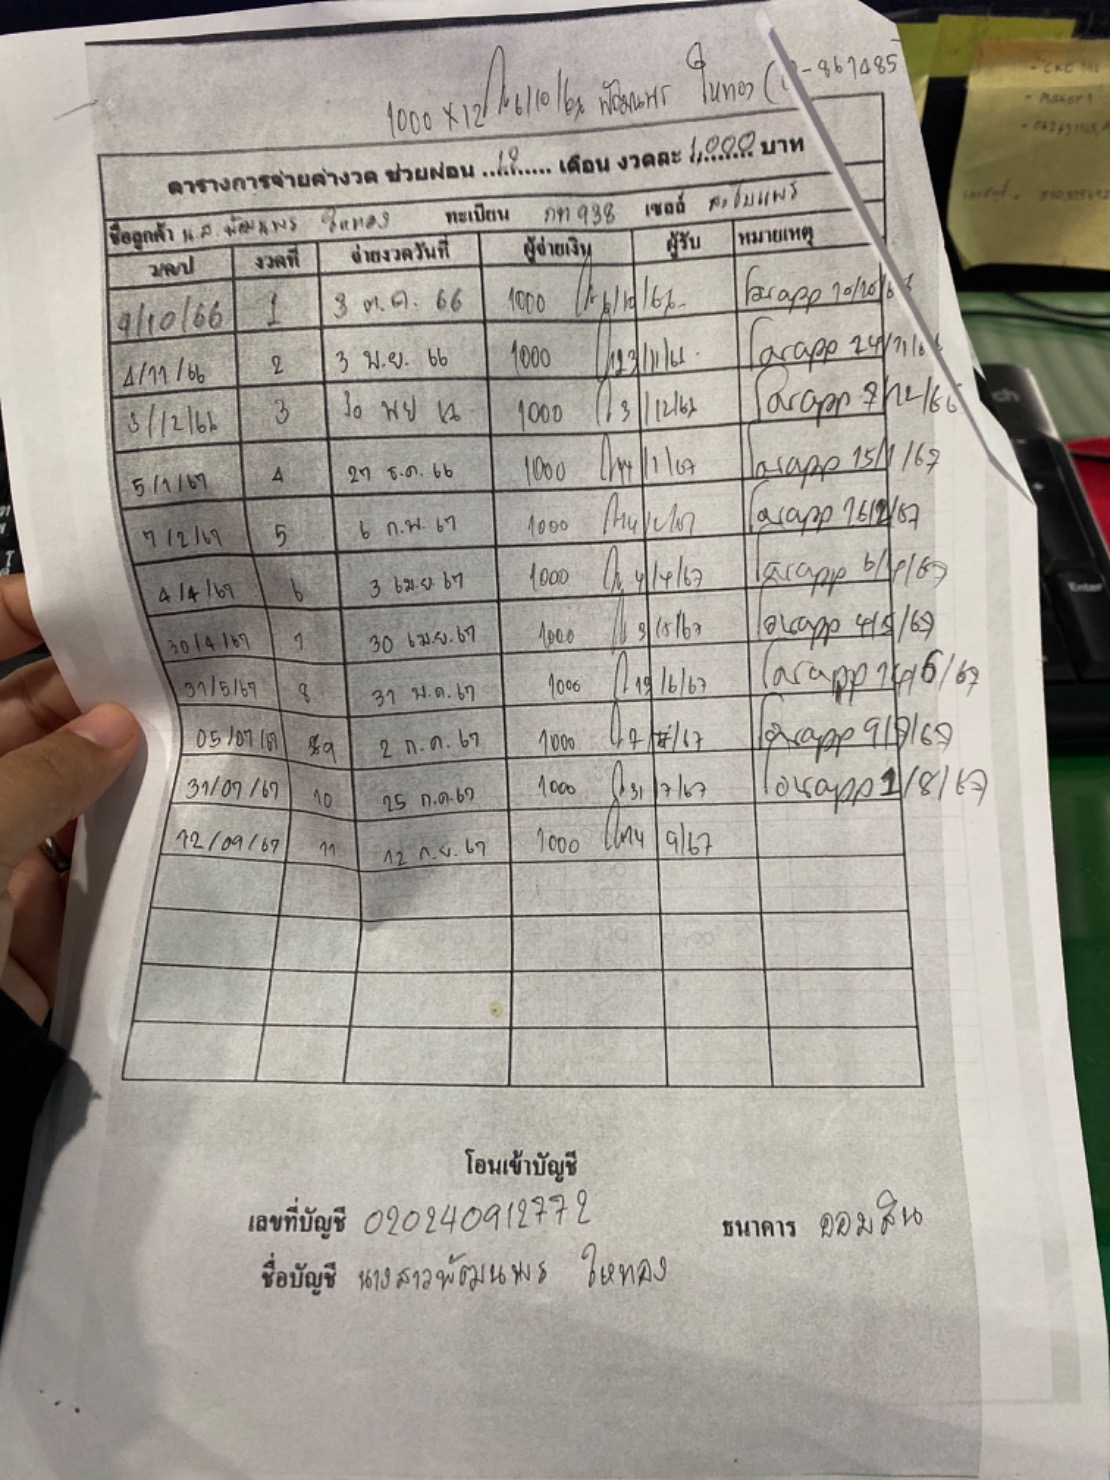 1000 x 12 6/10/66 พัฒนพร ใหทอง 867485
ตารางการจ่ายค่างวด ช่วยผ่อน ..12.. เดือน งวดละ 1,000 บาท
ชื่อลูกค้า น.ส. พัฒนพร ใหทอง ทะเบียน 938 เซลล์
ว/ด/ป งวดที่ จ่ายงวดวันที่ ผู้จ่ายเงิน ผู้รับ หมายเหตุ
9/10/66 1 3 ต.ค. 66 1000 6/10/66 โอนapp 10/10/66
4/11/66 2 3 พ.ย. 66 1000 /11/66 โอนapp 24/11/66
3/12/66 3 30 พย 66 1000 3/12/66 โอนapp 7/12/66
5/1/67 4 27 ธ.ค. 66 1000 /1/67 โอนapp 15/1/67
7/2/67 5 6 ก.พ. 67 1000 14/2/67 โอนapp 16/2/67
4/4/67 6 3 เม.ย 67 1000 4/4/67 โอนapp 6/4/67
30/4/67 7 30 เม.ย. 67 1000 3/5/67 โอนapp 4/5/67
31/5/67 8 31 พ.ค. 67 1000 /6/67 โอนapp /6/67
05/07/67 9 2 ก.ค. 67 1000 7/7/67 โอนapp 9/7/67
31/07/67 10 25 ก.ค. 67 1000 31/7/67 โอนapp 1/8/67
12/09/67 11 12 ก.ย. 67 1000 14 9/67
โอนเข้าบัญชี
เลขที่บัญชี 020240912772 ธนาคาร ออมสิน
ชื่อบัญชี นางสาวพัฒนพร ใหทอง